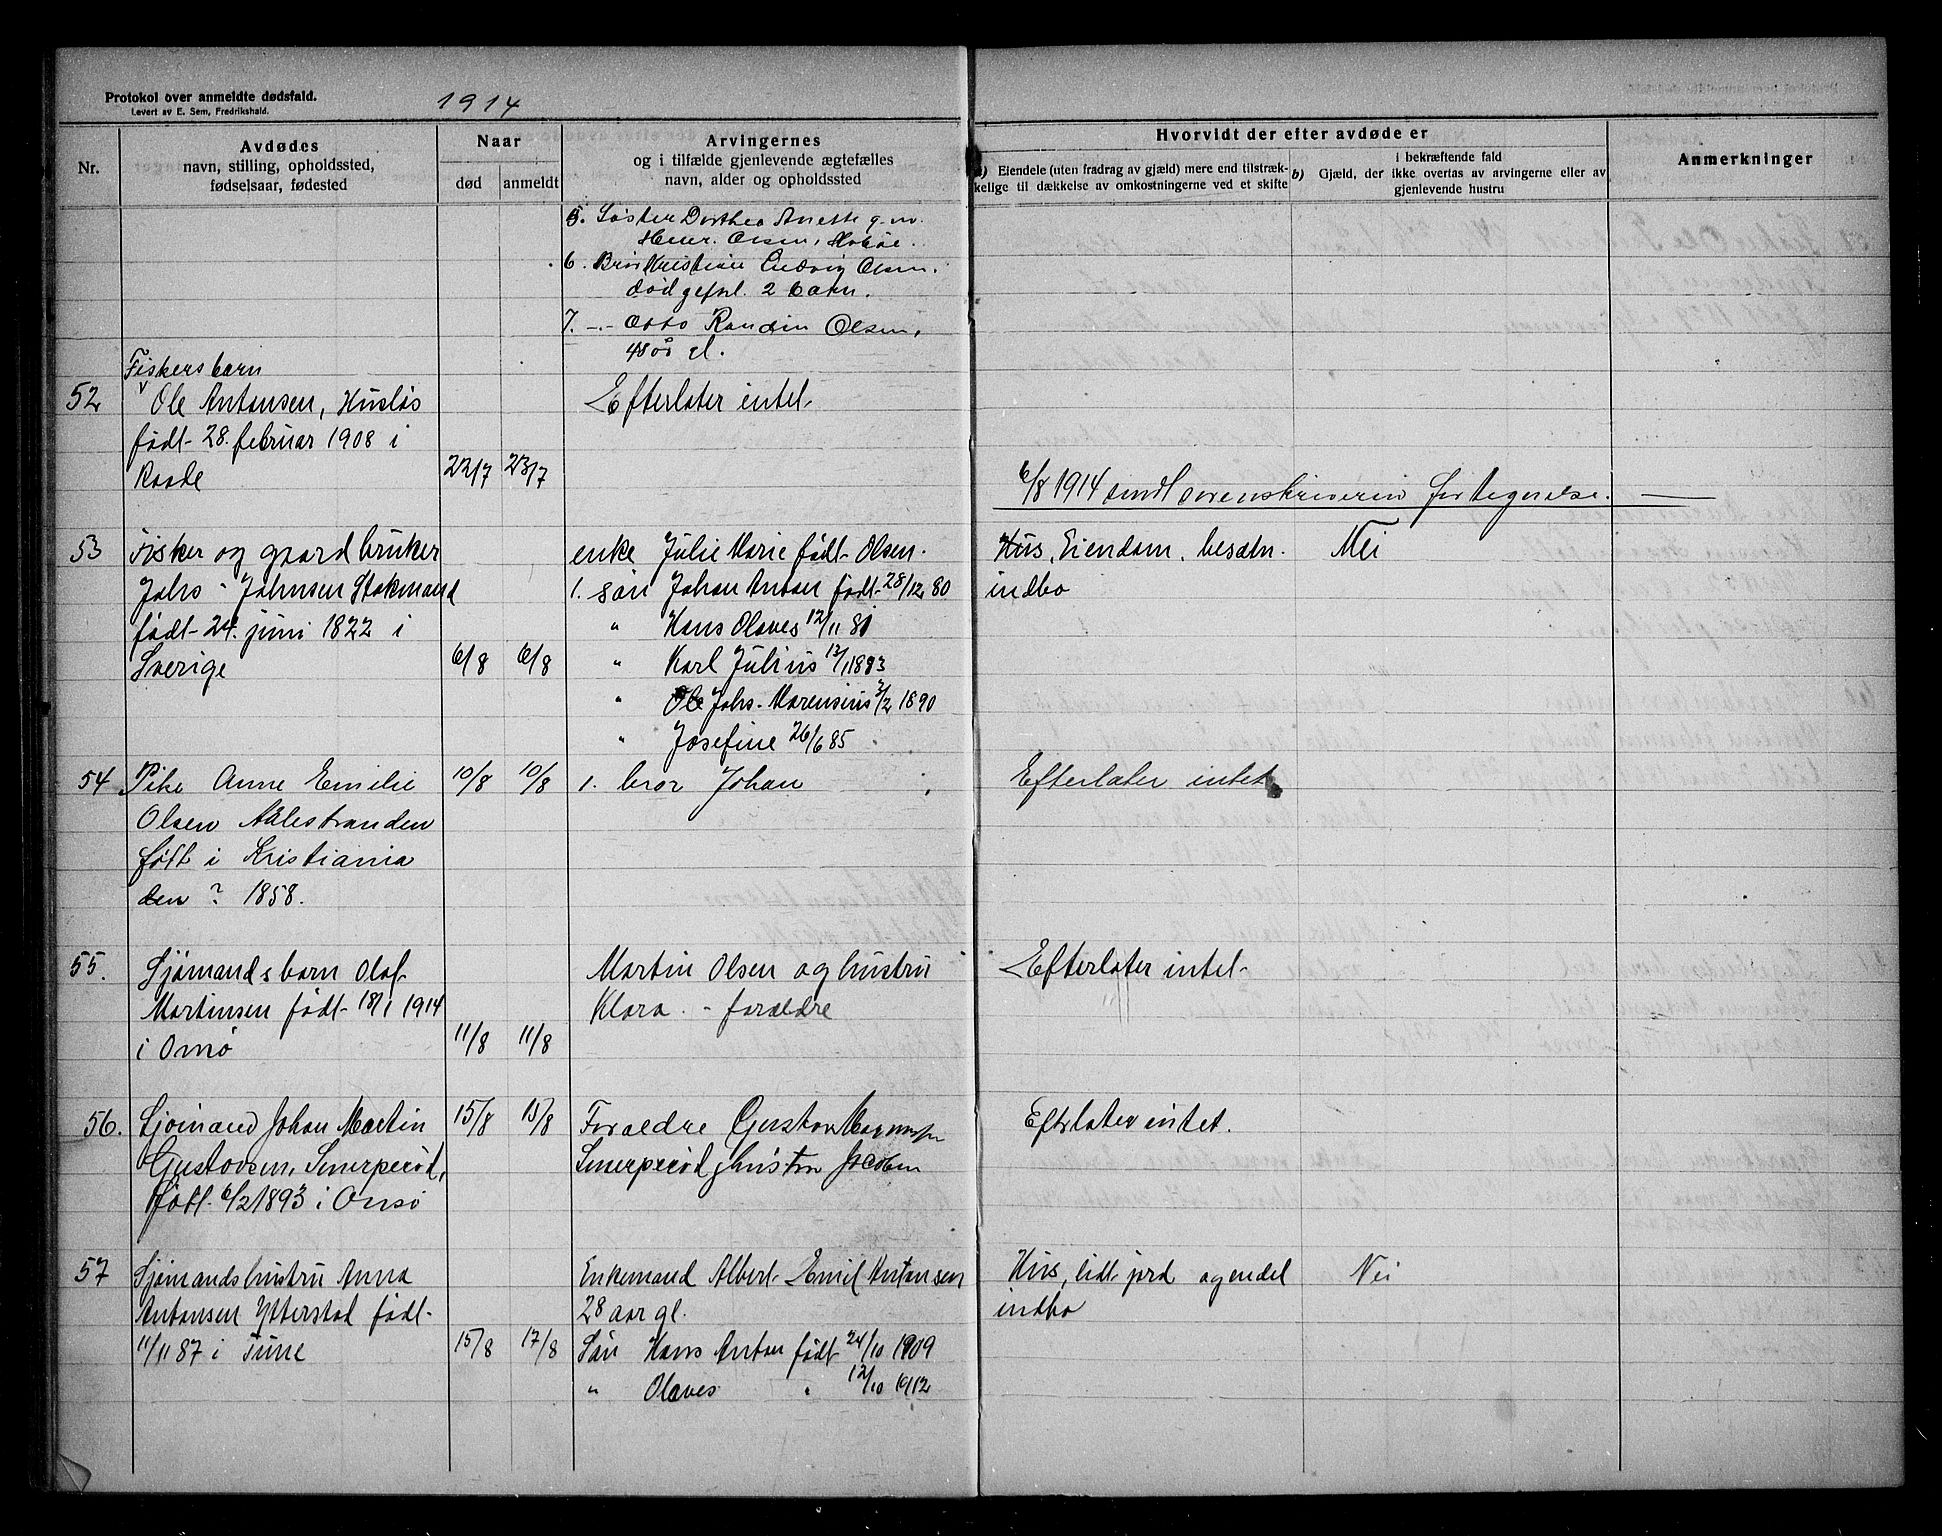 Protokol over anmeldte dødsfald.
Levert av E. Sem, Fredrikshald.
1914
Nr.
Avdødes
navn, stilling, opholdssted,
fødselsaar, fødested
Naar
død
anmeldt
Arvingernes
og i tilfælde gjenlevende ægtefælles
navn, alder og opholdssted
Hvorvidt der efter avdøde er
a) Eiendele (uten fradrag av gjæld) mere end tilstræk-
kelige til dækkelse av omkostningerne ved et skifte
b) i bekræftende fald
Gjæld, der ikke overtas av arvingerne eller av
gjenlevende hustru
Anmerkninger
5. Søster Dorthea Anette g.m.
Olsen,
6. Bror Kristian Ludvig Olsen.
død 2 barn.
7. -.- Otto Olsen,
48 år gl.
Fiskersbarn
52 Ole Antonsen, Husløs
født 28. februar 1908 i
Raade
22/7 23/7
Efterlater intet
6/8 1914 sendt sorenskriveren fortegnelse.
53 Fisker og gaardbruker
Johs. Johnsen Stokmand
født 24. juni 1822 i
Sverige
6/8 6/8
enke Julie Marie født Olsen.
1. søn Johan Anton født 28/12 80
" Hans Olaves 12/11 81
" Karl Julius 13/1 1883
" Ole Johs. Marensius 3/2 1890
" Josefine 26/6 85
Hus, Eiendom, besætn.
indbo
Nei
54 Pike Anne Emilie
Olsen Aalestranden
født i Kristiania
den ? 1858.
10/8 10/8
1. bror Johan
Efterlater intet
55. Sjømandsbarn Olaf
Martinsen født 18/1 1914
i Onsø
11/8 11/8
Martin Olsen og hustru
Klara. - forældre
Efterlater intet
56. Sjømand Johan Martin
Gustavsen, Smerperød,
født 6/2 1893 i Onsø
15/8 15/8
Forældre Gustav
Smerperød
Efterlater intet.
57 Sjømandshustru Anna
Antonsen Ytterstad født
11/11 87 i Tune
15/8 17/8
Enkemand Albert Emil Antonsen
28 aar gl.
Søn Hans Anton født 24/10 1909
" Olaves " 12/10 1912
Hus, lidt jord og endel
indbo
Nei